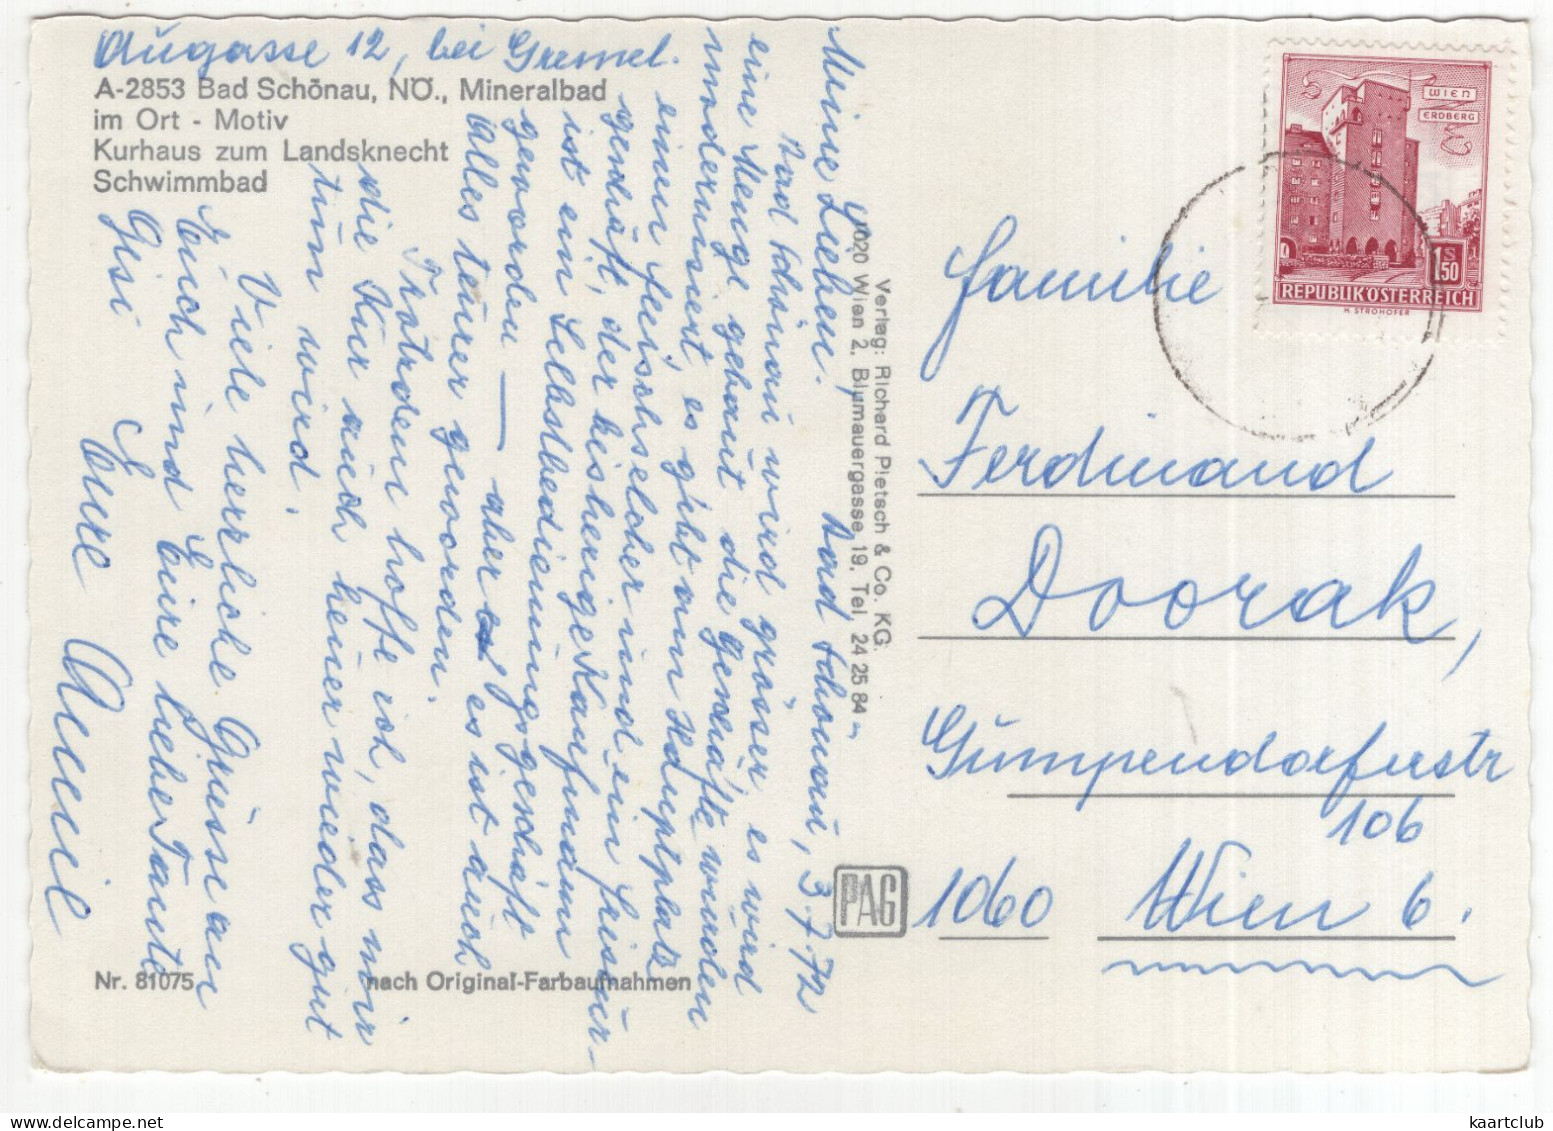 Augasse 12, bei Gremel.
A-2853 Bad Schönau, NÖ., Mineralbad
im Ort - Motiv
Kurhaus zum Landsknecht
Schwimmbad
Bad Schönau, 3.7.72
Meine Lieben!
Bad Schönau wird grösser, es wird
eine Menge gebaut die Geschäfte wurden
modernisiert, es gibt am Hauptplatz
einen Fleischselcher und ein Friseur-
geschäft, der bisherige Kaufmann
ist ein Selbstbedienungsgeschäft
geworden — aber es ist auch
Alles teurer geworden.
Trotzdem hoffe ich, dass mir
die Kur auch heuer wieder gut
tun wird.
Viele herzliche Grüsse an
Euch und Eure liebe Tante
Gisi
Eure
Verlag: Richard Pietsch & Co. KG.
1020 Wien 2, Blumauergasse 19, Tel. 24 25 84
PAG
Nr. 81075
nach Original-Farbaufnahmen
WIEN
ERDBERG
S
1.50
REPUBLIK ÖSTERREICH
H. STROHOFER
Familie
Ferdinand
Dvorak,
Gumpendorferstr
106
1060 Wien 6.
kaartclub